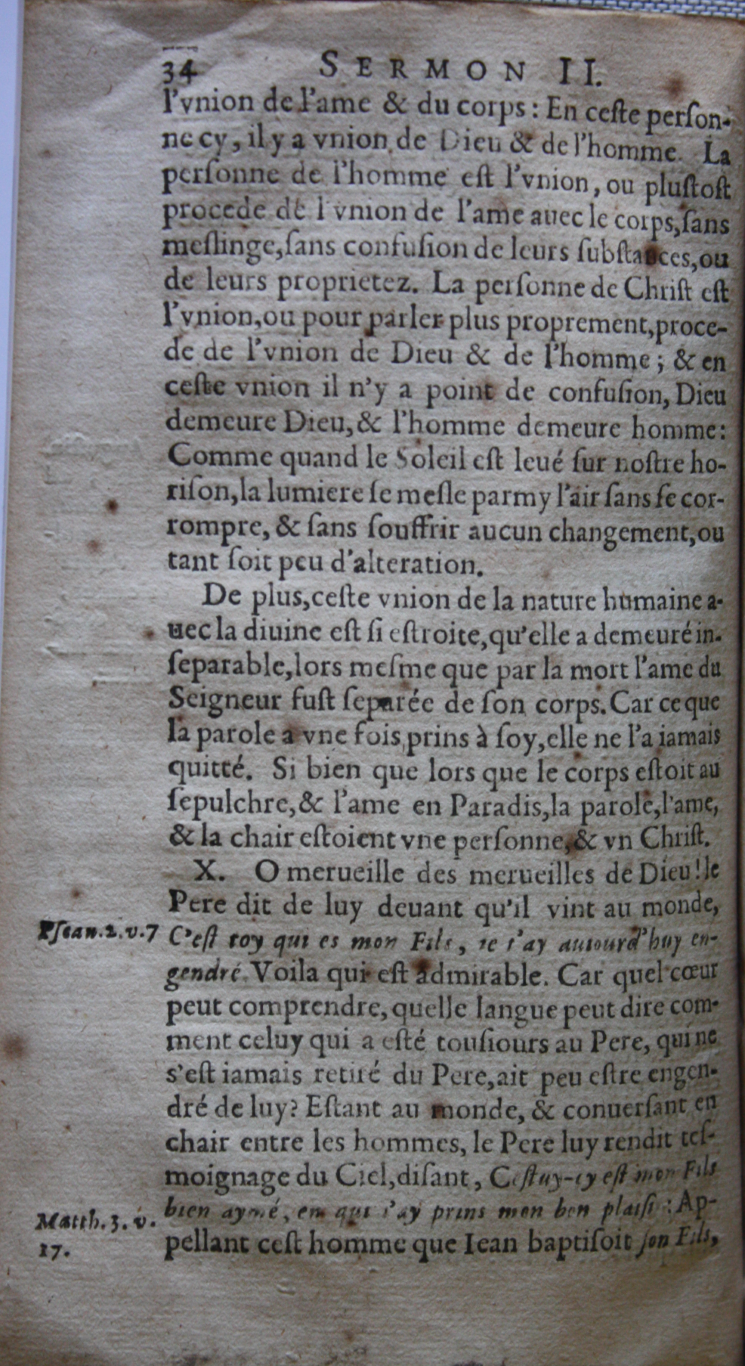 34 SERMON II.
l'vnion de l'ame & du corps : En ceſte perſon-
ne cy, il y a vnion de Dieu & de l'homme. La
perſonne de l'homme eſt l'vnion, ou pluſtoſt
procede de l'vnion de l'ame auec le corps, ſans
meſlinge, ſans confuſion de leurs ſubſtances, ou
de leurs proprietez. La perſonne de Chriſt eſt
l'vnion, ou pour parler plus proprement, proce-
de de l'vnion de Dieu & de l'homme ; & en
ceſte vnion il n'y a point de confuſion, Dieu
demeure Dieu, & l'homme demeure homme:
Comme quand le Soleil eſt leué ſur noſtre ho-
riſon, la lumiere ſe meſle parmy l'air ſans ſe cor-
rompre, & ſans ſouffrir aucun changement, ou
tant ſoit peu d'alteration.
De plus, ceſte vnion de la nature humaine a-
uec la diuine eſt ſi eſtroite, qu'elle a demeuré in-
ſeparable, lors meſme que par la mort l'ame du
Seigneur fuſt ſeparée de ſon corps. Car ce que
la parole a vne fois prins à ſoy, elle ne l'a iamais
quitté. Si bien que lors que le corps eſtoit au
ſepulchre, & l'ame en Paradis, la parole, l'ame,
& la chair eſtoient vne perſonne, & vn Chriſt.
X. O merueille des merueilles de Dieu! le
Pere dit de luy deuant qu'il vint au monde,
Pſean. 2. v. 7 C'eſt toy qui es mon Fils, ie t'ay auiourd'huy en-
gendré. Voila qui eſt admirable. Car quel cœur
peut comprendre, quelle langue peut dire com-
ment celuy qui a eſté touſiours au Pere, qui ne
s'eſt iamais retiré du Pere, ait peu eſtre engen-
dré de luy? Eſtant au monde, & conuerſant en
chair entre les hommes, le Pere luy rendit teſ-
moignage du Ciel, diſant, Ceſtuy-cy eſt mon Fils
Matth. 3. v. bien aymé, en qui i'ay prins mon bon plaiſir : Ap-
17. pellant ceſt homme que Iean baptiſoit ſon Fils,